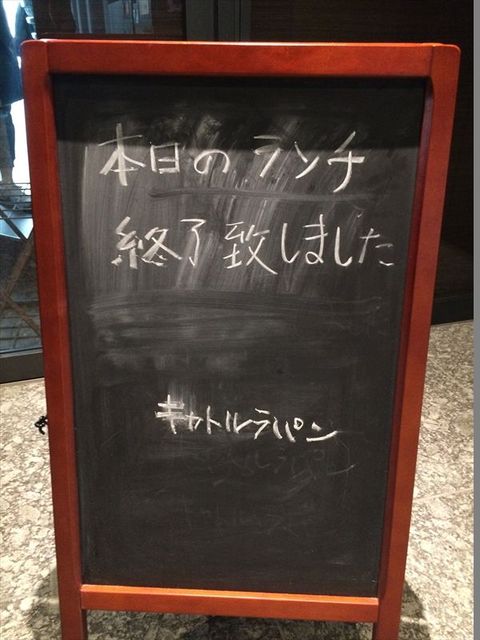 本日のランチ
終了致しました
キャトルラパン